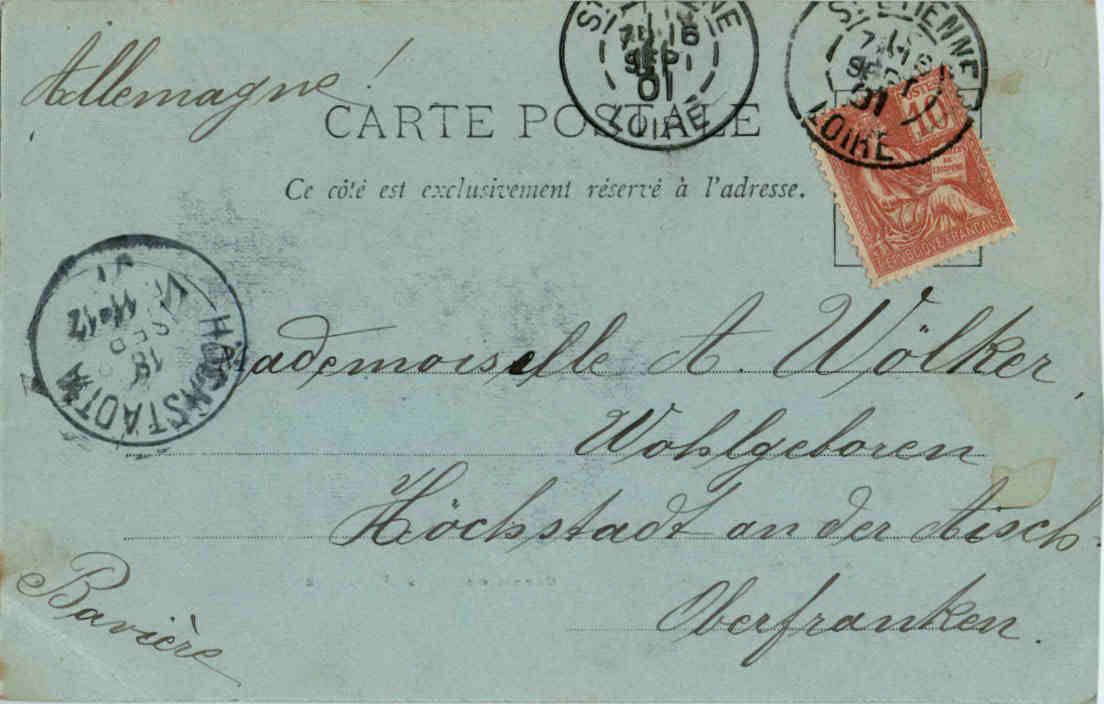 Allemagne!
CARTE POSTALE
Ce côté est exclusivement réservé à l'adresse.
ST ETIENNE
16
SEPT
01
LOIRE
ST ETIENNE
SEPT
01
LOIRE
POSTES
10
REPUBLIQUE FRANÇAISE
HÖCHSTADT A
18
SEP
11-12
01
Mademoiselle A. Wölker,
Wohlgeboren
Höchstadt an der Aisch.
Oberfranken.
Bavière